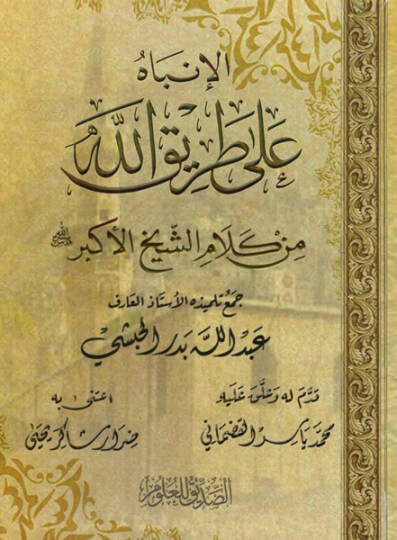 الإنباهُ
عَلَى طَرِيقِ اللَّهِ
مِنْ كَلَامِ الشَّيْخِ الأَكْبَرِ
جَمَعَ تلميذه الأستاذ العَارف
عَبد اللَّه بَدر الحبشي
قدَّم له وَعلَّق عَلَيه اعتنى به
محمّد يَاسِر القضماني ضِرار شاكر يحيى
الصِّدِّيق للعُلوم